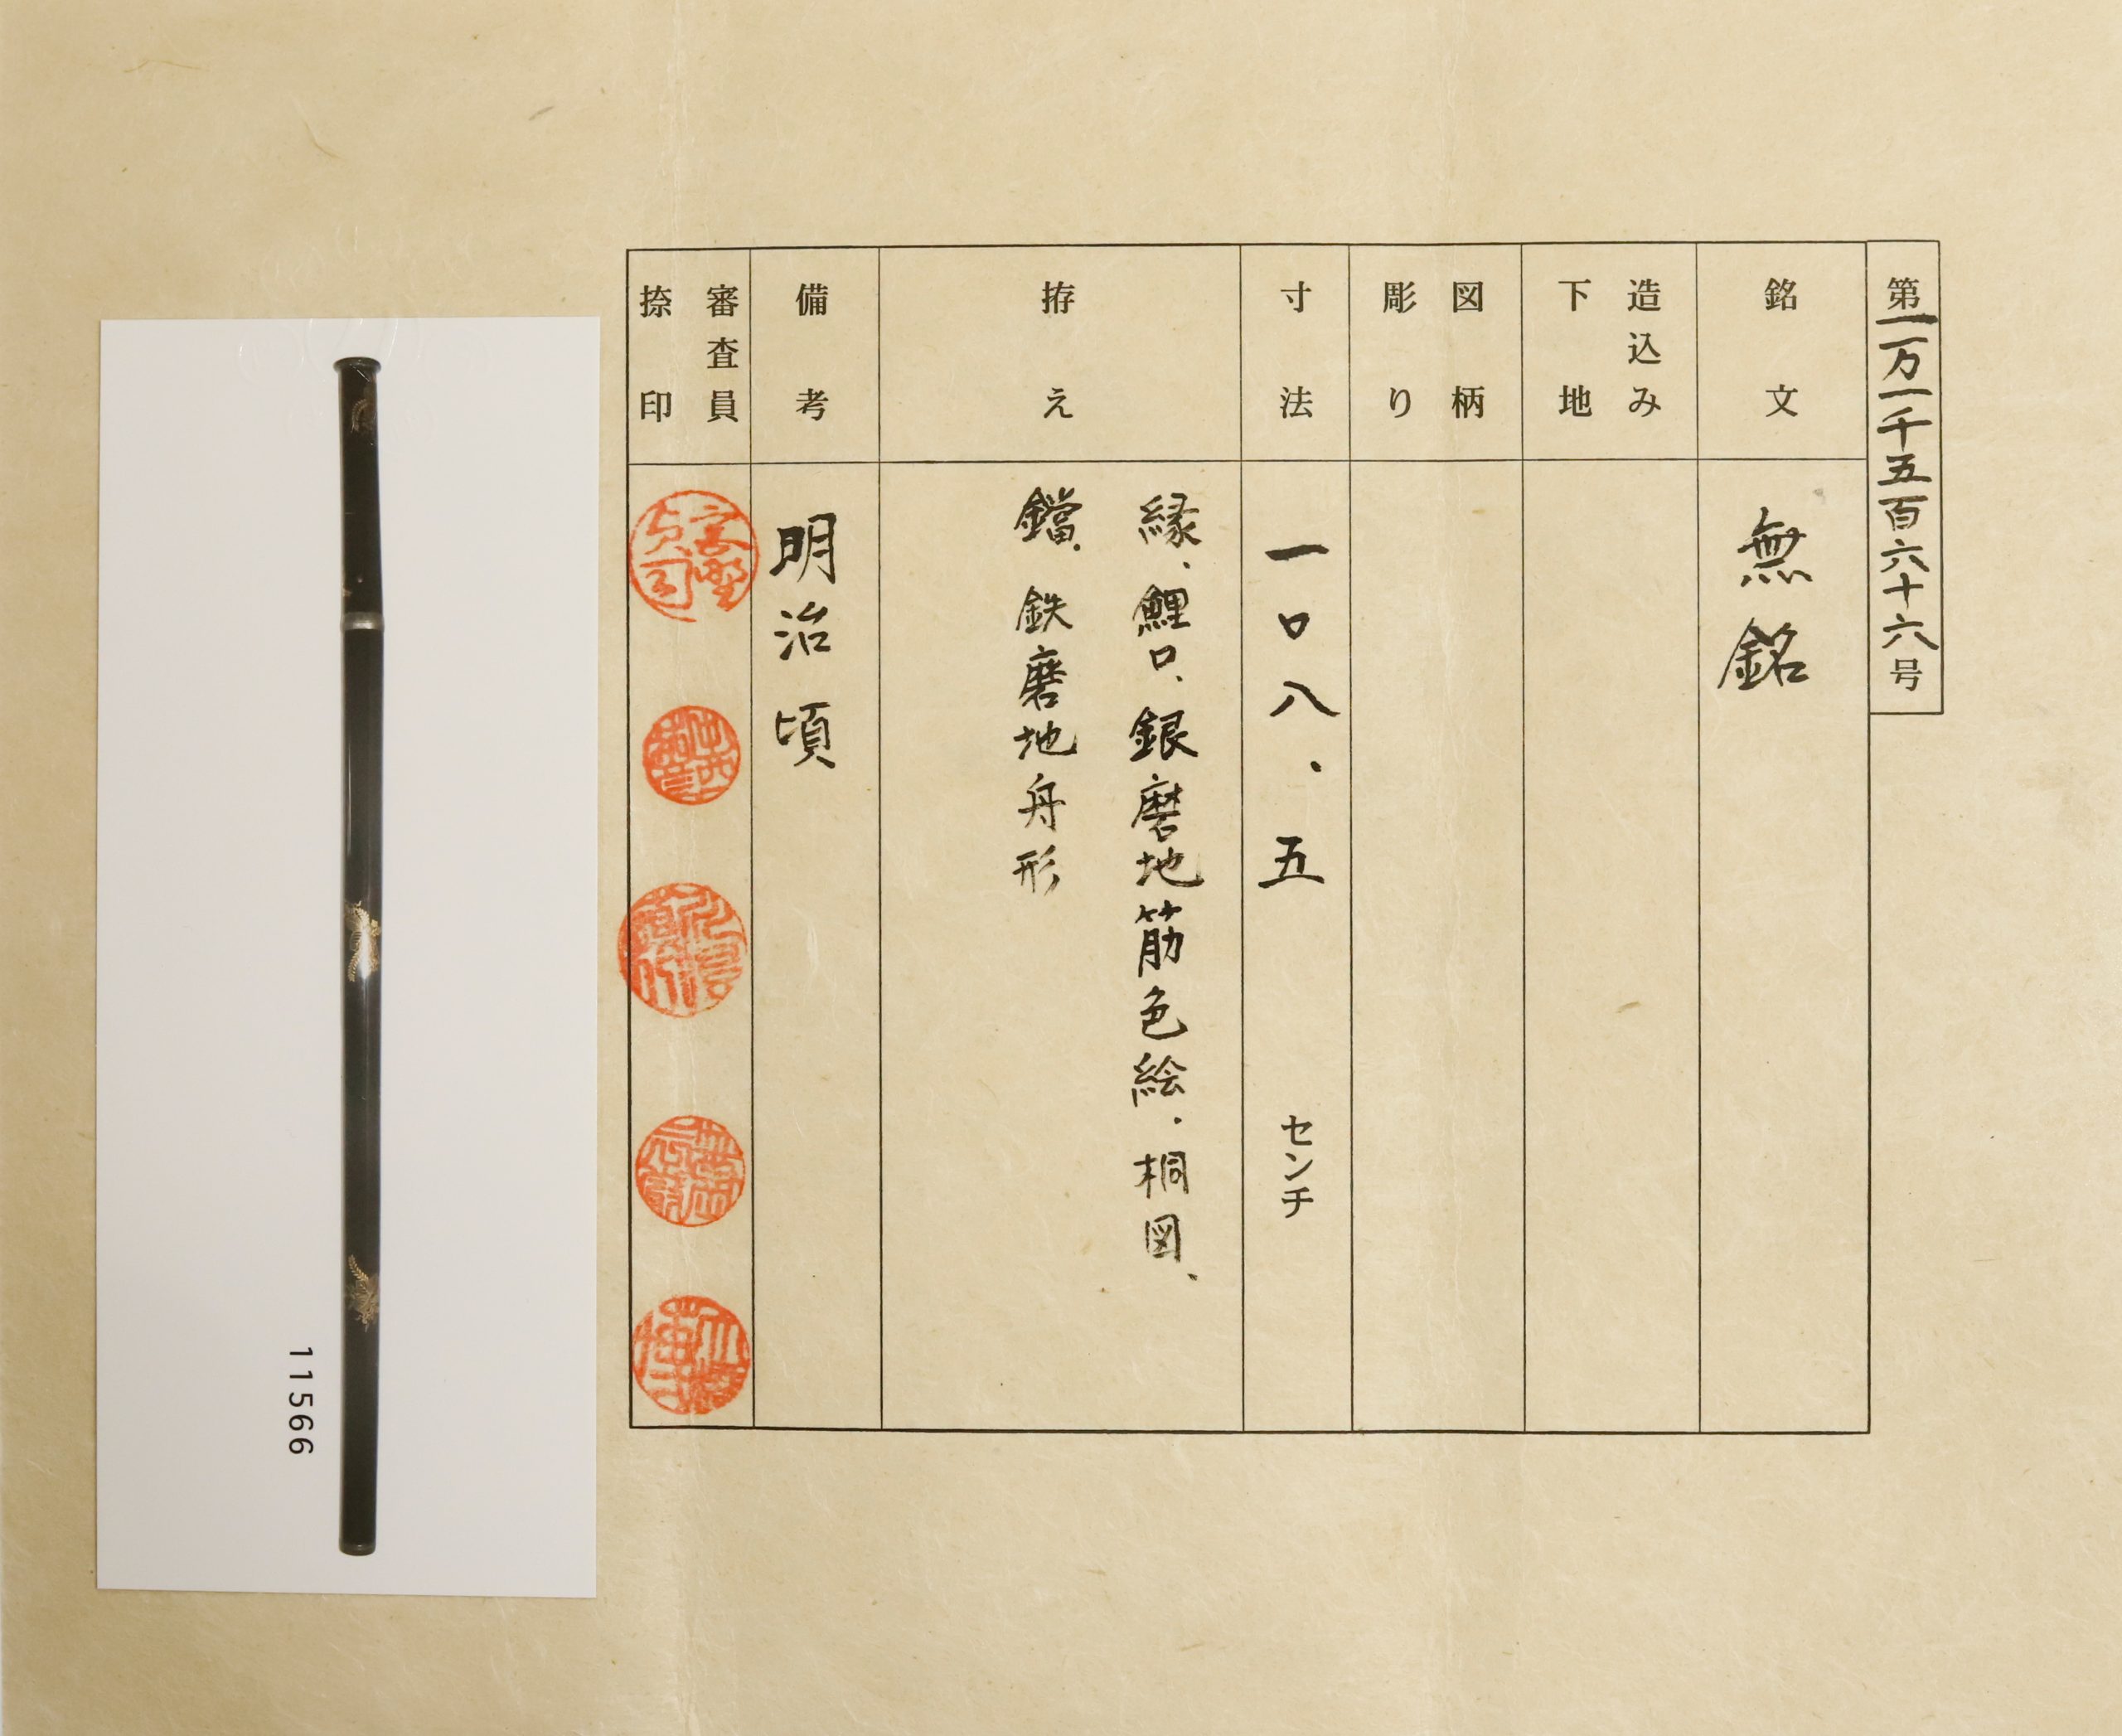 第一万一千五百六十六号
銘文
無銘
造込み
下地
図柄
彫り
寸法
一〇八.五 センチ
拵え
縁、鯉口、銀磨地筋色絵.桐図、
鐺、鉄磨地舟形
備考
明治頃
審査員
捺印
11566